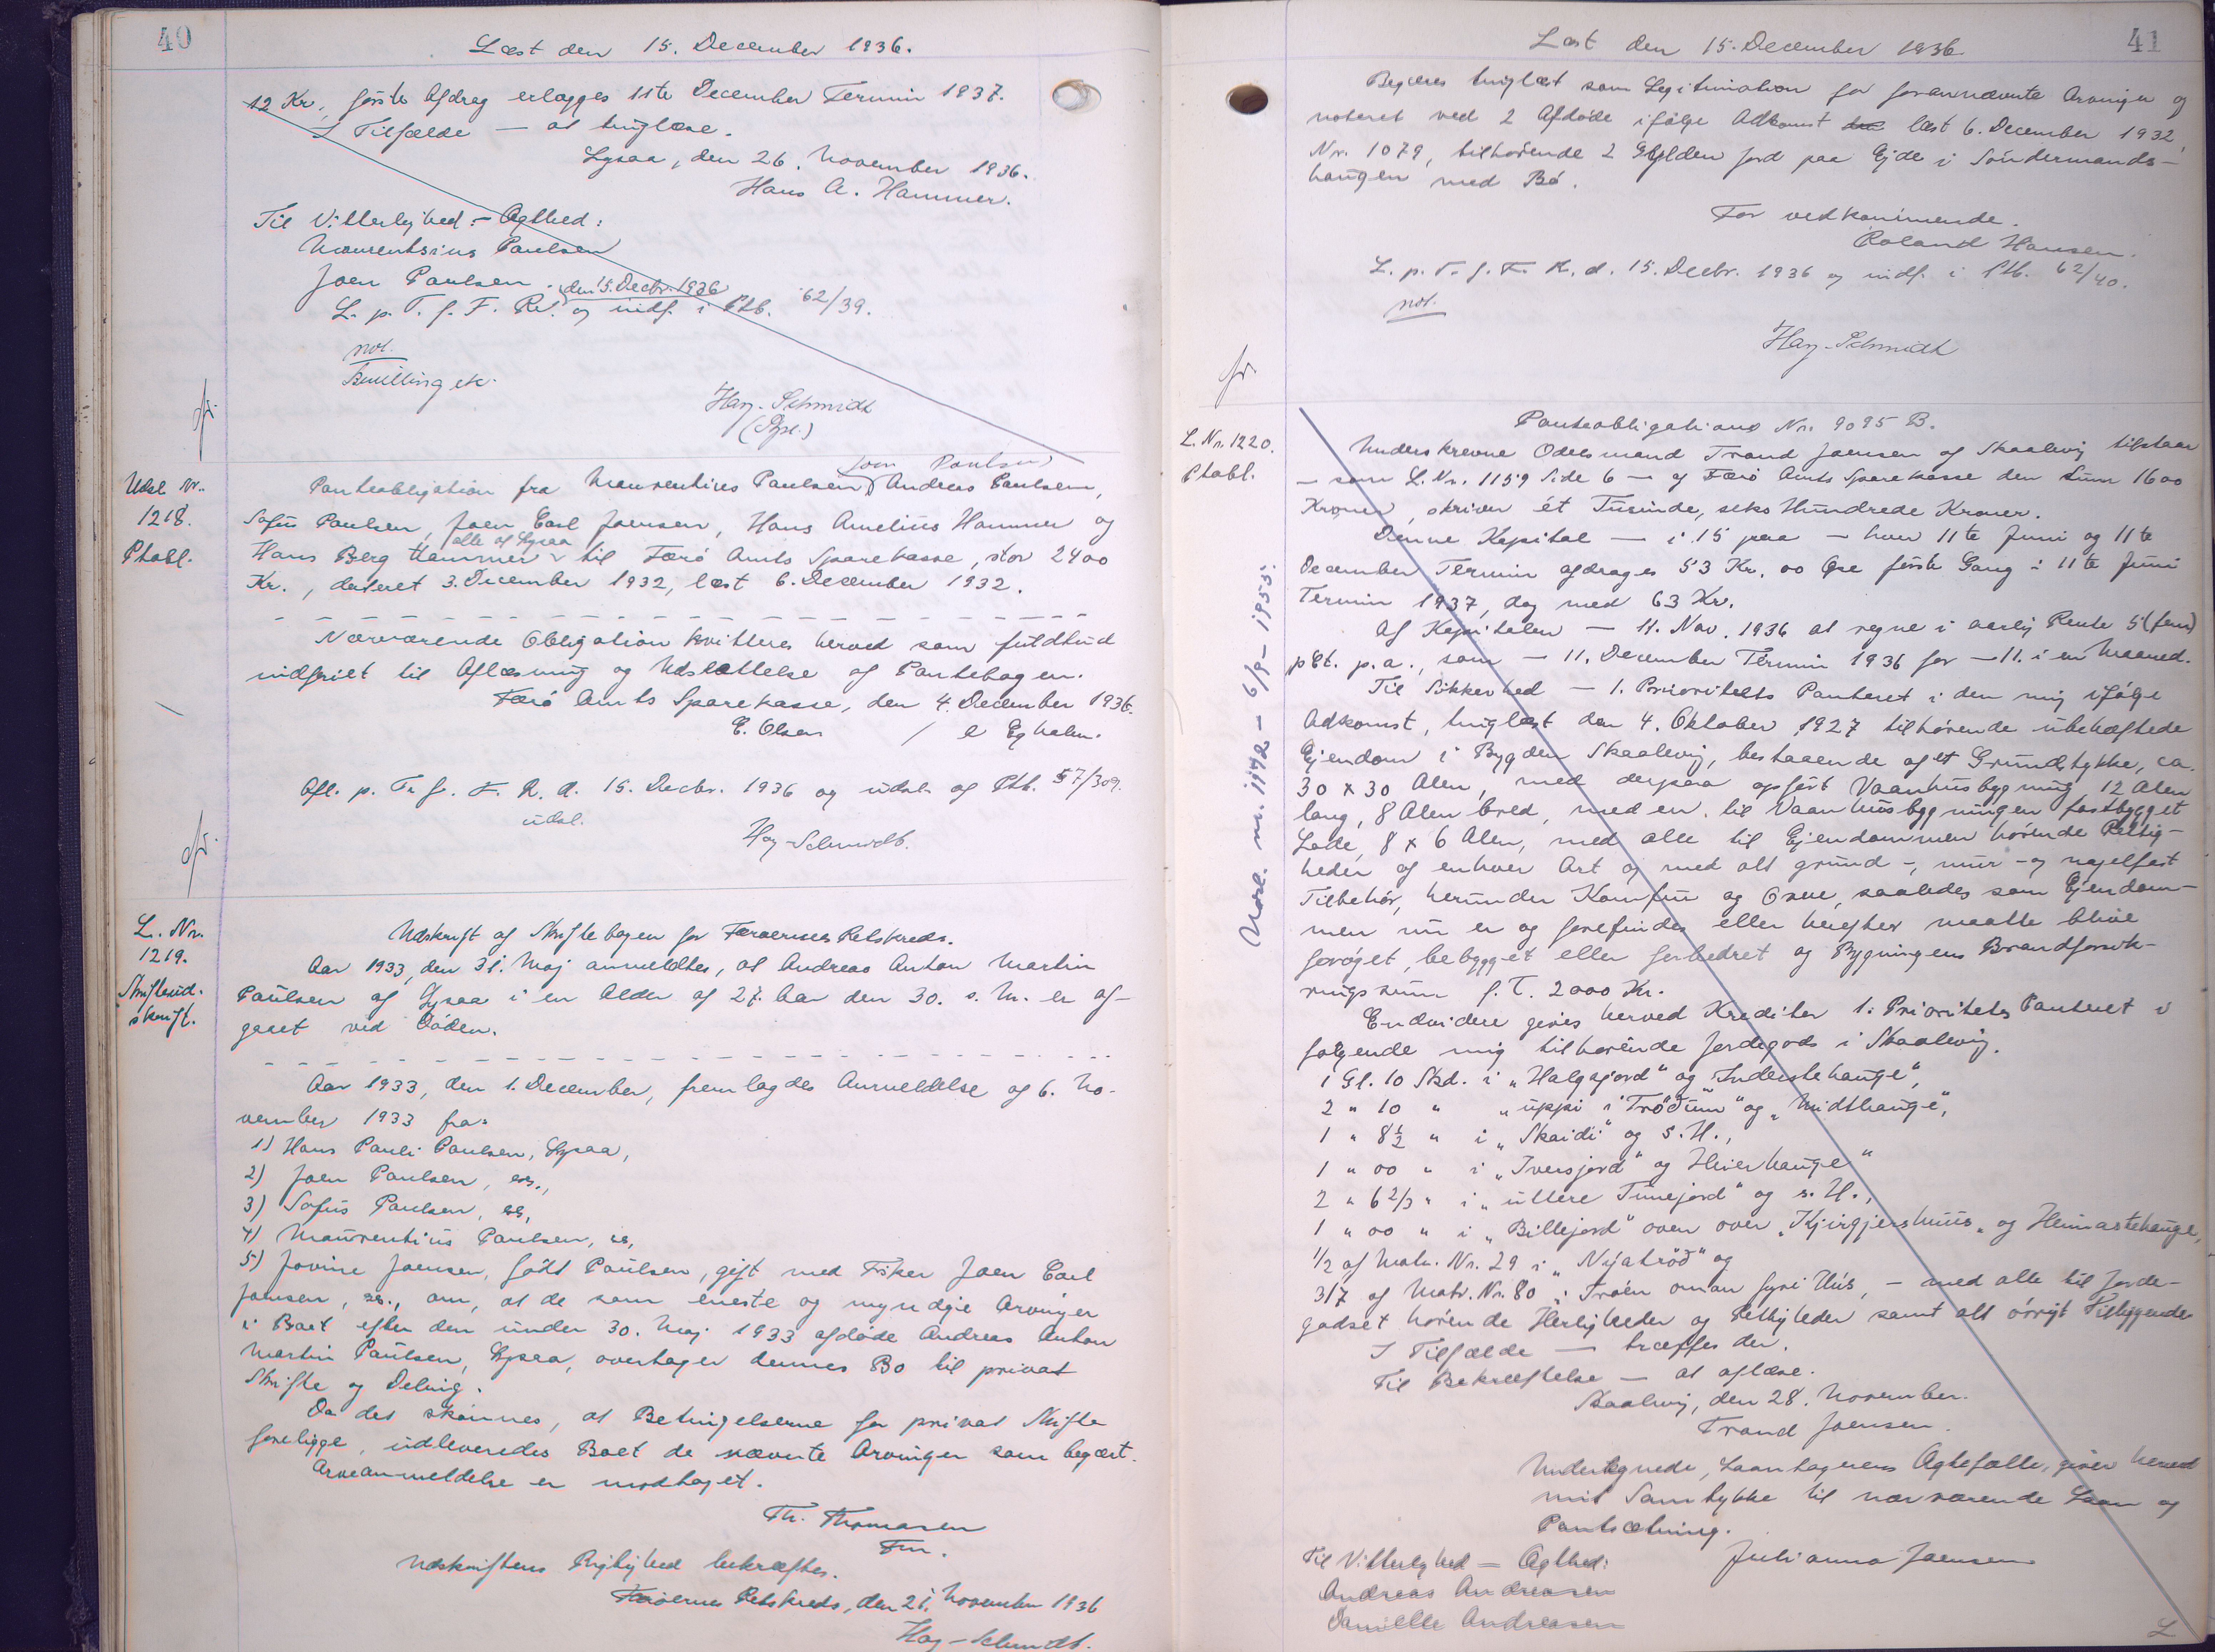 40
Læst den 15. December 1936.
12 Kr., første Afdrag erlægges 11te December Termin 1937.
I Tilfælde — at tinglæse.
Lysaa, den 26. November 1936.
Hans A. Hammer.
Til Vitterlighed - Ægthed:
Maurentsius Paulsen
Joen Paulsen.
den 15. Decbr. 1936
L. p. T. f. F. R. og indf. i Ptb. 62/39.
not.
Hay-Schmidt
Udsl. Nr.
1218.
Ptobl.
Joen Paulsen
Panteobligation fra Maurentius Paulsen, Andreas Paulsen,
Sofus Paulsen, Joen Carl Joensen, Hans Amelius Hammer og
alle af Lysaa
Hans Berg Hammer til Færö Amts Sparekasse, stor 2400
Kr., dateret 3. December 1932, læst 6. December 1932.
Nærværende Obligation kvitteres herved som fuldtud
indfriet til Aflæsning og Udslettelse af Pantebogen.
Færö Amts Sparekasse, den 4. December 1936.
E. Olsen / e Egholm.
Afl. p. T. f. F. R. d. 15. Decbr. 1936 og udsl. af Ptb. 57/309.
udsl.
Hay-Schmidt.
L. Nr.
1219.
Skifteud-
skrift.
Udskrift af Skiftebogen for Færøernes Retskreds.
Aar 1933, den 31. Maj anmeldtes, at Andreas Anton Martin
Paulsen af Lysaa i en Alder af 27 Aar den 30. s. M. er af-
gaaet ved Døden.
Aar 1933, den 1. December, fremlagdes Anmeldelse af 6. No-
vember 1933 fra:
1) Hans Pauli Paulsen, Lysaa,
2) Joen Paulsen, ss.,
3) Sofus Paulsen, ss,
4) Maurentius Paulsen, ss,
5) Jovine Joensen, født Paulsen, gift med Fisker Joen Carl
Joensen, ss., om, at de som eneste og myndige Arvinger
i Boet efter den under 30. Maj 1933 afdøde Andreas Anton
Martin Paulsen, Lysaa, overtager dennes Bo til privat
Skifte og Deling.
Da det skønnes, at Betingelserne for privat Skifte
foreligge, udleveredes Boet de nævnte Arvinger som begært.
Arveanmeldelse er modtaget.
Th. Thomasen
Fm.
Udskriftens Rigtighed bekræftes.
Færøernes Retskreds, den 21. November 1936
Hay-Schmidt.
41
Læst den 15. December 1936.
Begæres tinglæst som Legitimation for forannævnte Arvinger og
noteret ved 2 Afdøde ifølge Adkomst læst 6. December 1932,
Nr. 1079, tilhørende 2 Gylden Jord paa Ejde i Söndermands-
haugen med Bø.
For vedkommende.
Roland Hansen.
L. p. T. f. F. R. d. 15. Decbr. 1936 og indf. i Ptb. 62/40.
not.
Hay-Schmidt
L. Nr. 1220.
Ptobl.
Udsl. nr. 1172 – 6/9 – 1955.
Panteobligation Nr. 9095 B.
Underskrevne Odelsmand Trond Joensen af Skaalevig tilstaar
— som L. Nr. 1159 Side 6 — af Færö Amts Sparekasse den Sum 1600
Kroner, skriver ét Tusinde, seks Hundrede Kroner.
Denne Kapital — i 15 paa — hver 11te Juni og 11te
December Termin afdrages 53 Kr. 00 Øre første Gang i 11te Juni
Termin 1937, dog med 63 Kr.
Af Kapitalen — 11. Nov. 1936 at regne i aarlig Rente 5 (fem)
pCt. p. a., som — 11. December Termin 1936 for — 11. i en Maaned.
Til Sikkerhed — 1. Prioritets Panteret i den mig ifølge
Adkomst, tinglæst den 4. Oktober 1927 tilhørende ubehæftede
Ejendom i Bygden Skaalevig, bestaaende af et Grundstykke, ca.
30 x 30 Alen, med derpaa opført Vaanhusbygning 12 Alen
lang, 8 Alen bred, med en til Vaanhusbygningen fastbygget
Lade, 8 x 6 Alen, med alle til Ejendommen hørende Rettig-
heder af enhver Art og med alt grund-, mur- og nagelfast
Tilbehør, herunder Komfur og Ovne, saaledes som Ejendom-
men nu er og forefindes eller herefter maatte blive
forøget, bebygget eller forbedret og Bygningens Brandforsik-
ringssum f. T. 2000 Kr.
Endvidere gives herved Kreditor 1. Prioritets Panteret i
følgende mig tilhørende Jordegods i Skaalevig.
1 Gl. 10 Skd. i „Halgajord" og „Inderstehauge",
2 " 10 " „uppi i Tröðum" og „Midthauge",
1 " 8½ " i „Skaidi" og s. H.,
1 " 00 " i „Iversjord" og Heierhauge"
2 " 6 2/3 " i „uttere Tunejord" og s. H.,
1 " 00 " i „Billejord" oven over „Kjirgjershuus" og Heimastehauge,
1/2 af Matr. Nr. 29 i „Nýatröð" og
3/7 af Matr. Nr. 80 i Tröen oman fyri Hús, — med alle til Jorde-
godset hørende Herligheder og Rettigheder samt alt øvrigt Tilliggende
I Tilfælde — træffes der.
Til Bekræftelse — at aflæse.
Skaalevig, den 28. November.
Trond Joensen.
Undertegnede, Laantagerens Ægtefælle, giver herved
mit Samtykke til nærværende Laan og
Pantsætning.
Julianna Joensen
Til Vitterlighed — Ægthed:
Andreas Andreasen
Danielle Andreasen
L